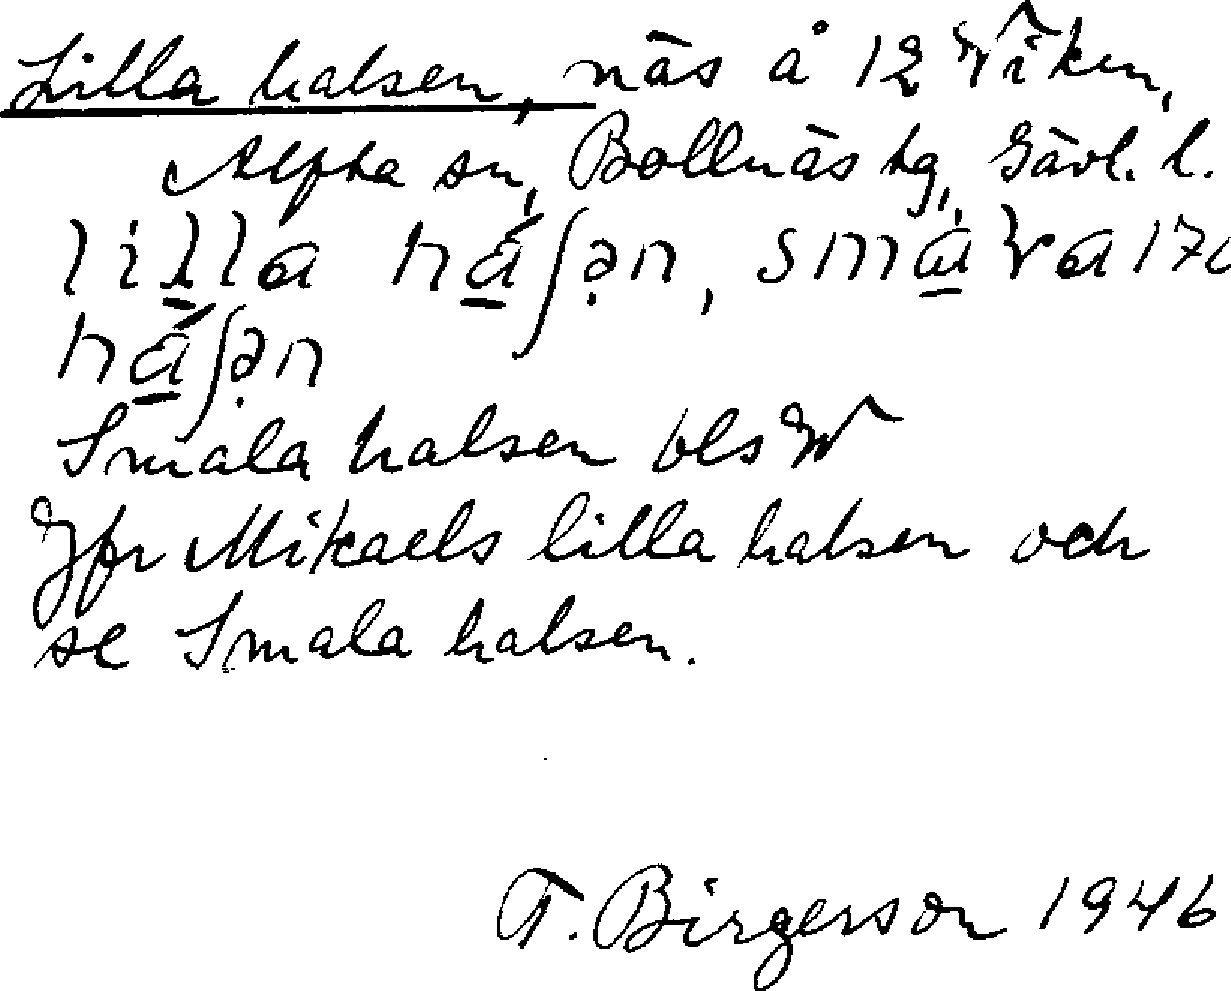 Lilla halsen, näs å 12 Viken,
Alfta sn, Bollnäs tg, Gävl. l.
lilla háʃən,
háʃən
Smala halsen bls W
Jfr Mikaels lilla halsen och
se Smala halsen.
T. Birgerson 1946